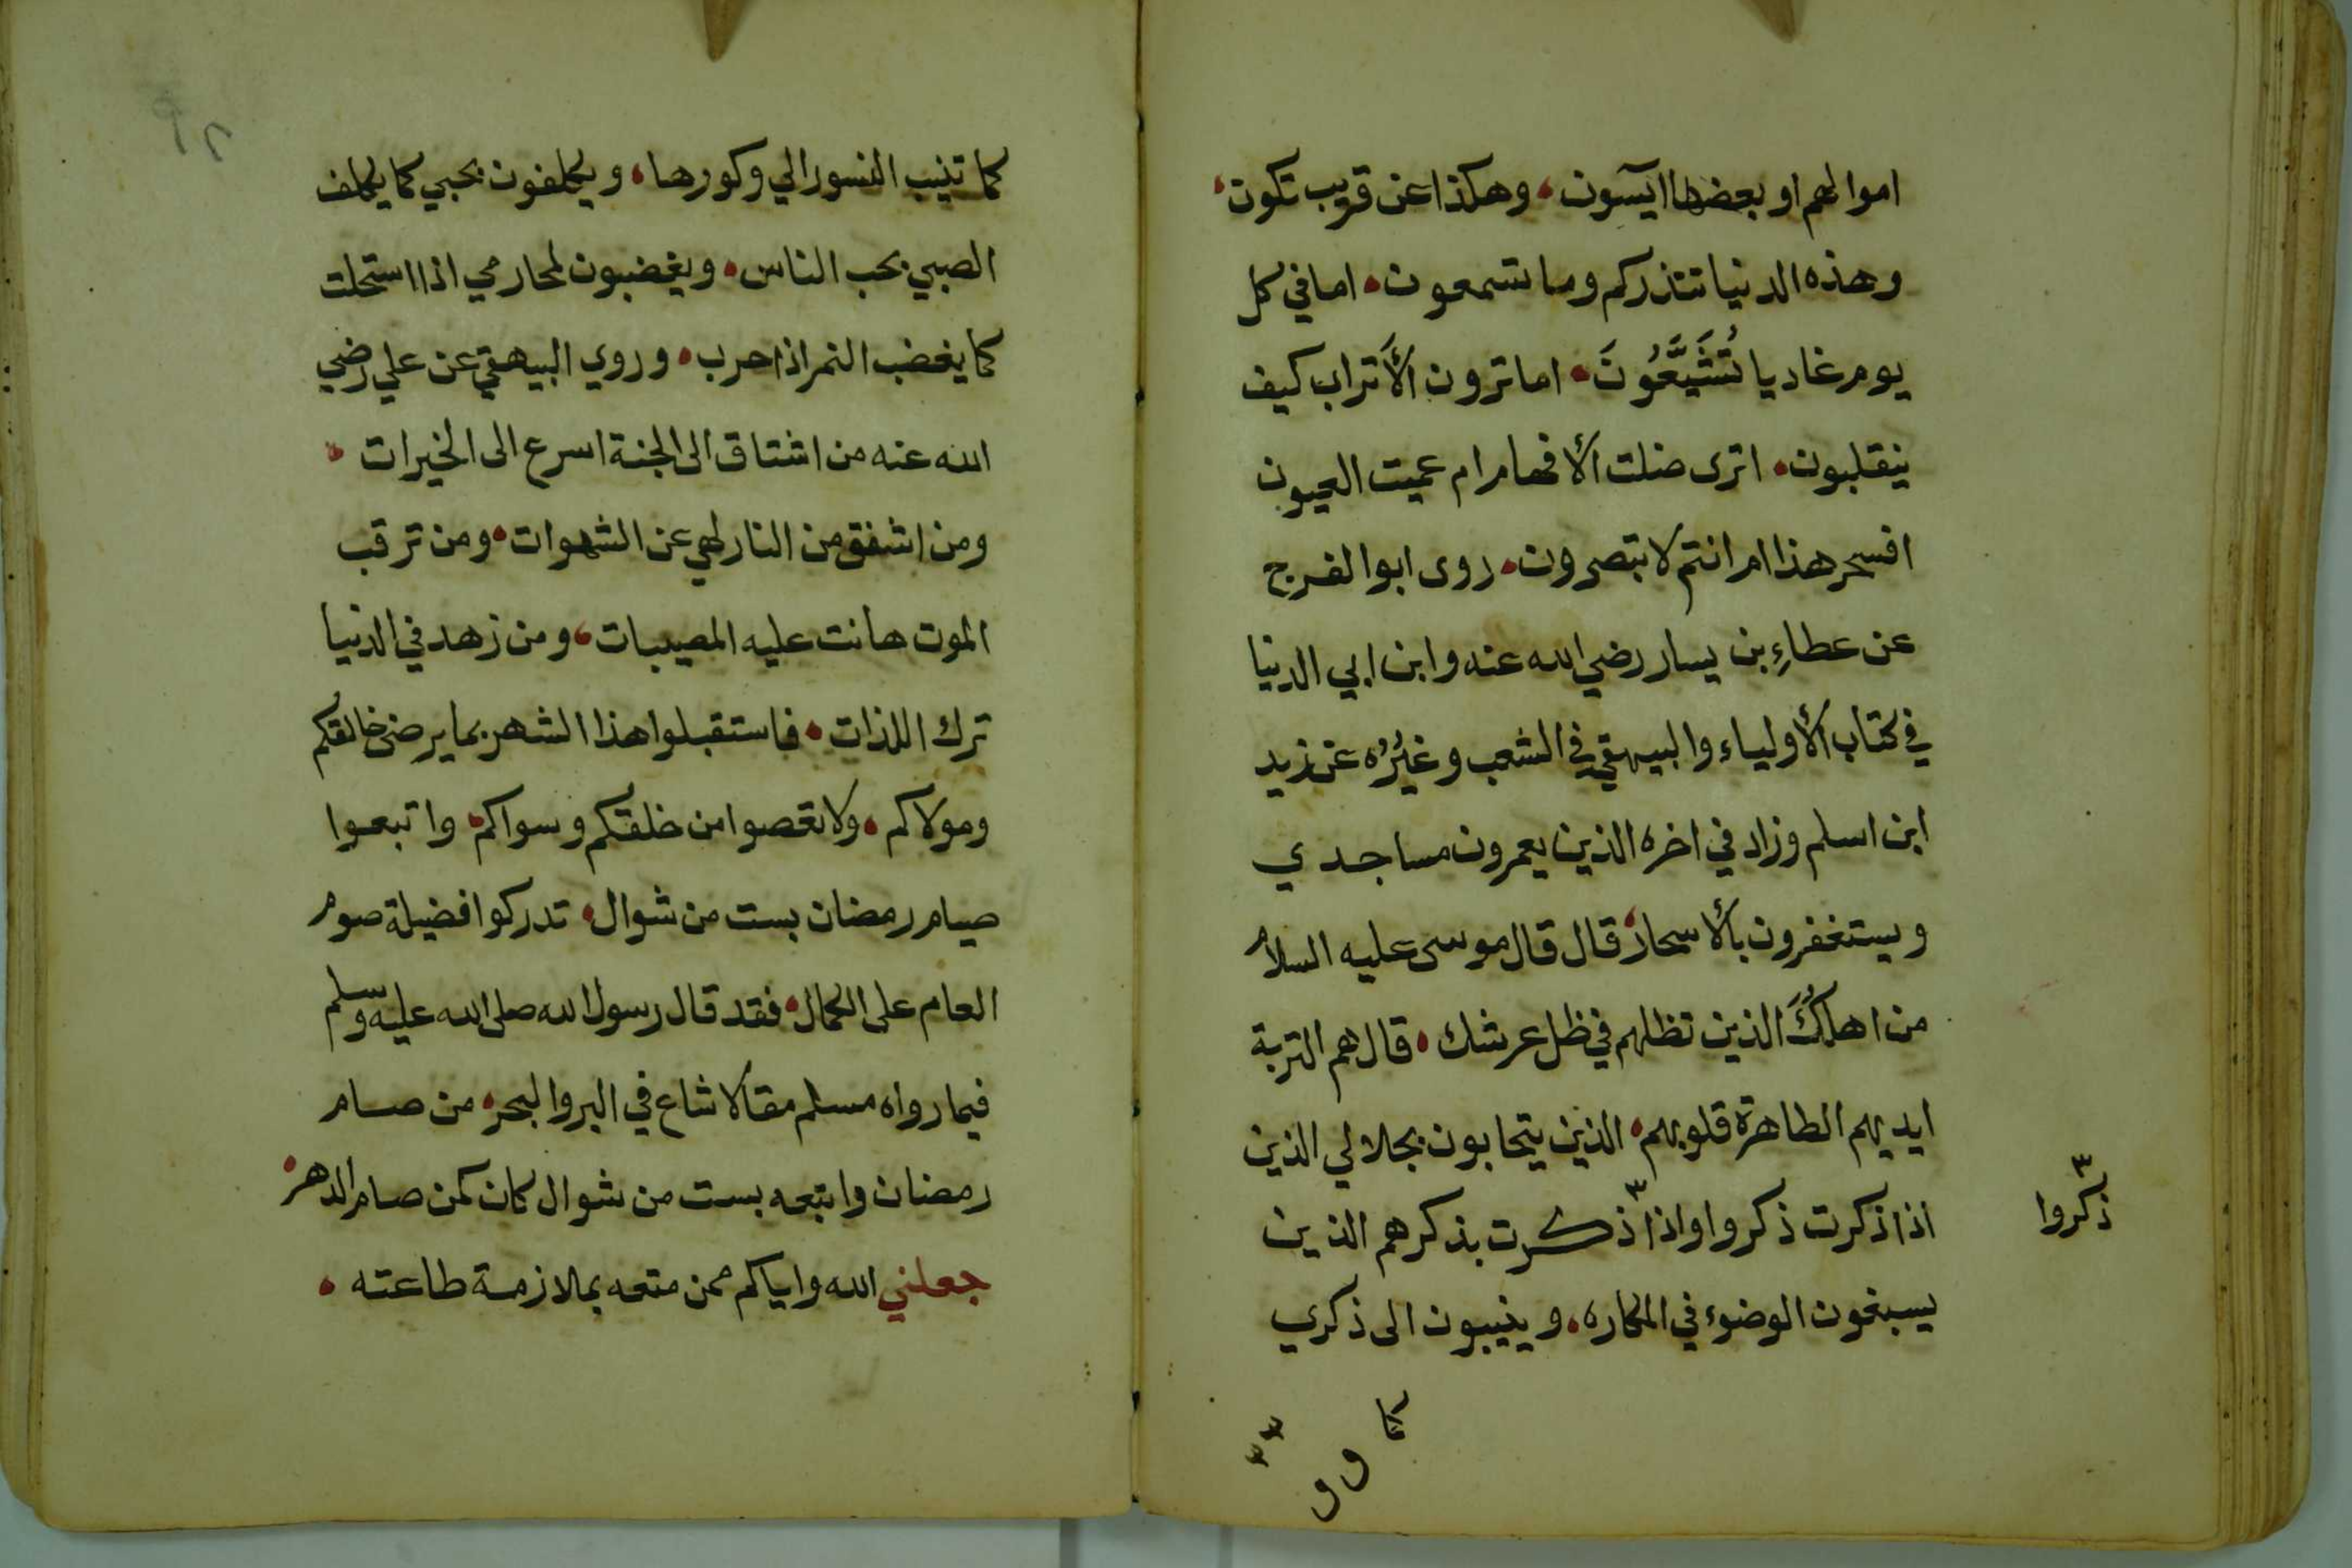 اموالهم او بعضها ايسون، وهكذا عن قريب تكون،
وهذه الدنيا تنذركم وما تسمعون، اما في كل
يوم غاديا تُشَيِّعُونَ، اما ترون الأَتراب كيف
ينقلبون، اترى ضلت الأفهام ام عميت العيون
افسحر هذا ام انتم لا تبصرون، روى ابو الفرج
عن عطاءِ بن يسار رضي الله عنه وابن ابي الدنيا
في كتاب الأولياء والبيهقي في الشعب وغيرُه عن زيد
ابن اسلم وزاد في اخره الذين يعمرون مساجدي
ويستغفرون بالأسحار، قال قال موسى عليه السلام
من اهلُكَ الذين تظلهم في ظل عرشك، قال هم التربة
ايديهم الطاهرة قلوبهم، الذين يتحابون بجلالي الذين
اذا ذكرت ذكروا واذا ذكرت بذكرهم الذين
ذكروا
يسبغون الوضوء في المكاره، وينيبون الى ذكري
كما
كما تنيب النسور الي وكورها، ويكلفون بحبي كما يكلف
الصبي بحب الناس، ويغضبون لمحارمي اذا استحلت
كما يغضب النمر اذا حرب، وروي البيهقي عن علي رضي
الله عنه من اشتاق الى الجنة اسرع الى الخيرات،
ومن اشفق من النار لهي عن الشهوات، ومن ترقب
الموت هانت عليه المصيبات، ومن زهد في الدنيا
ترك اللذات، فاستقبلوا هذا الشهر بما يرضى خالقُكم
ومولاكم، ولا تعصوا من خلقكم وسواكم، واتبعوا
صيام رمضان بست من شوال، تدركوا فضيلة صوم
العام على الكمال، فقد قال رسول الله صلى الله عليه وسلم
فيما رواه مسلم مقالا شاع في البر والبحر، من صام
رمضان واتبعه بست من شوال كان كمن صام الدهر،
جعلني الله واياكم ممن متعه بملازمة طاعته،